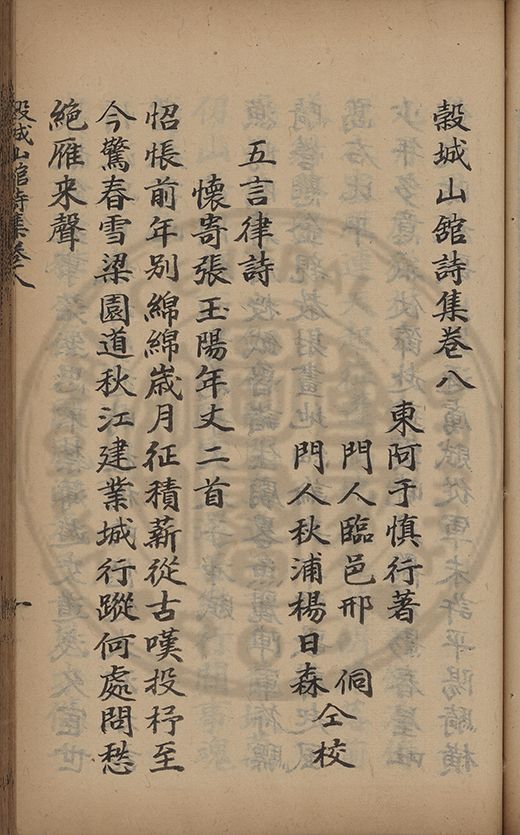 穀城山館詩集卷八
東阿于慎行著
門人臨邑邢　侗
門人秋浦楊日森
仝校
五言律詩
懷寄張玉陽年丈二首
怊悵前年別綿綿歲月征積薪從古嘆投杼至
今驚春雪梁園道秋江建業城行蹤何處問愁
絕雁来聲
穀城山館詩集卷八
一